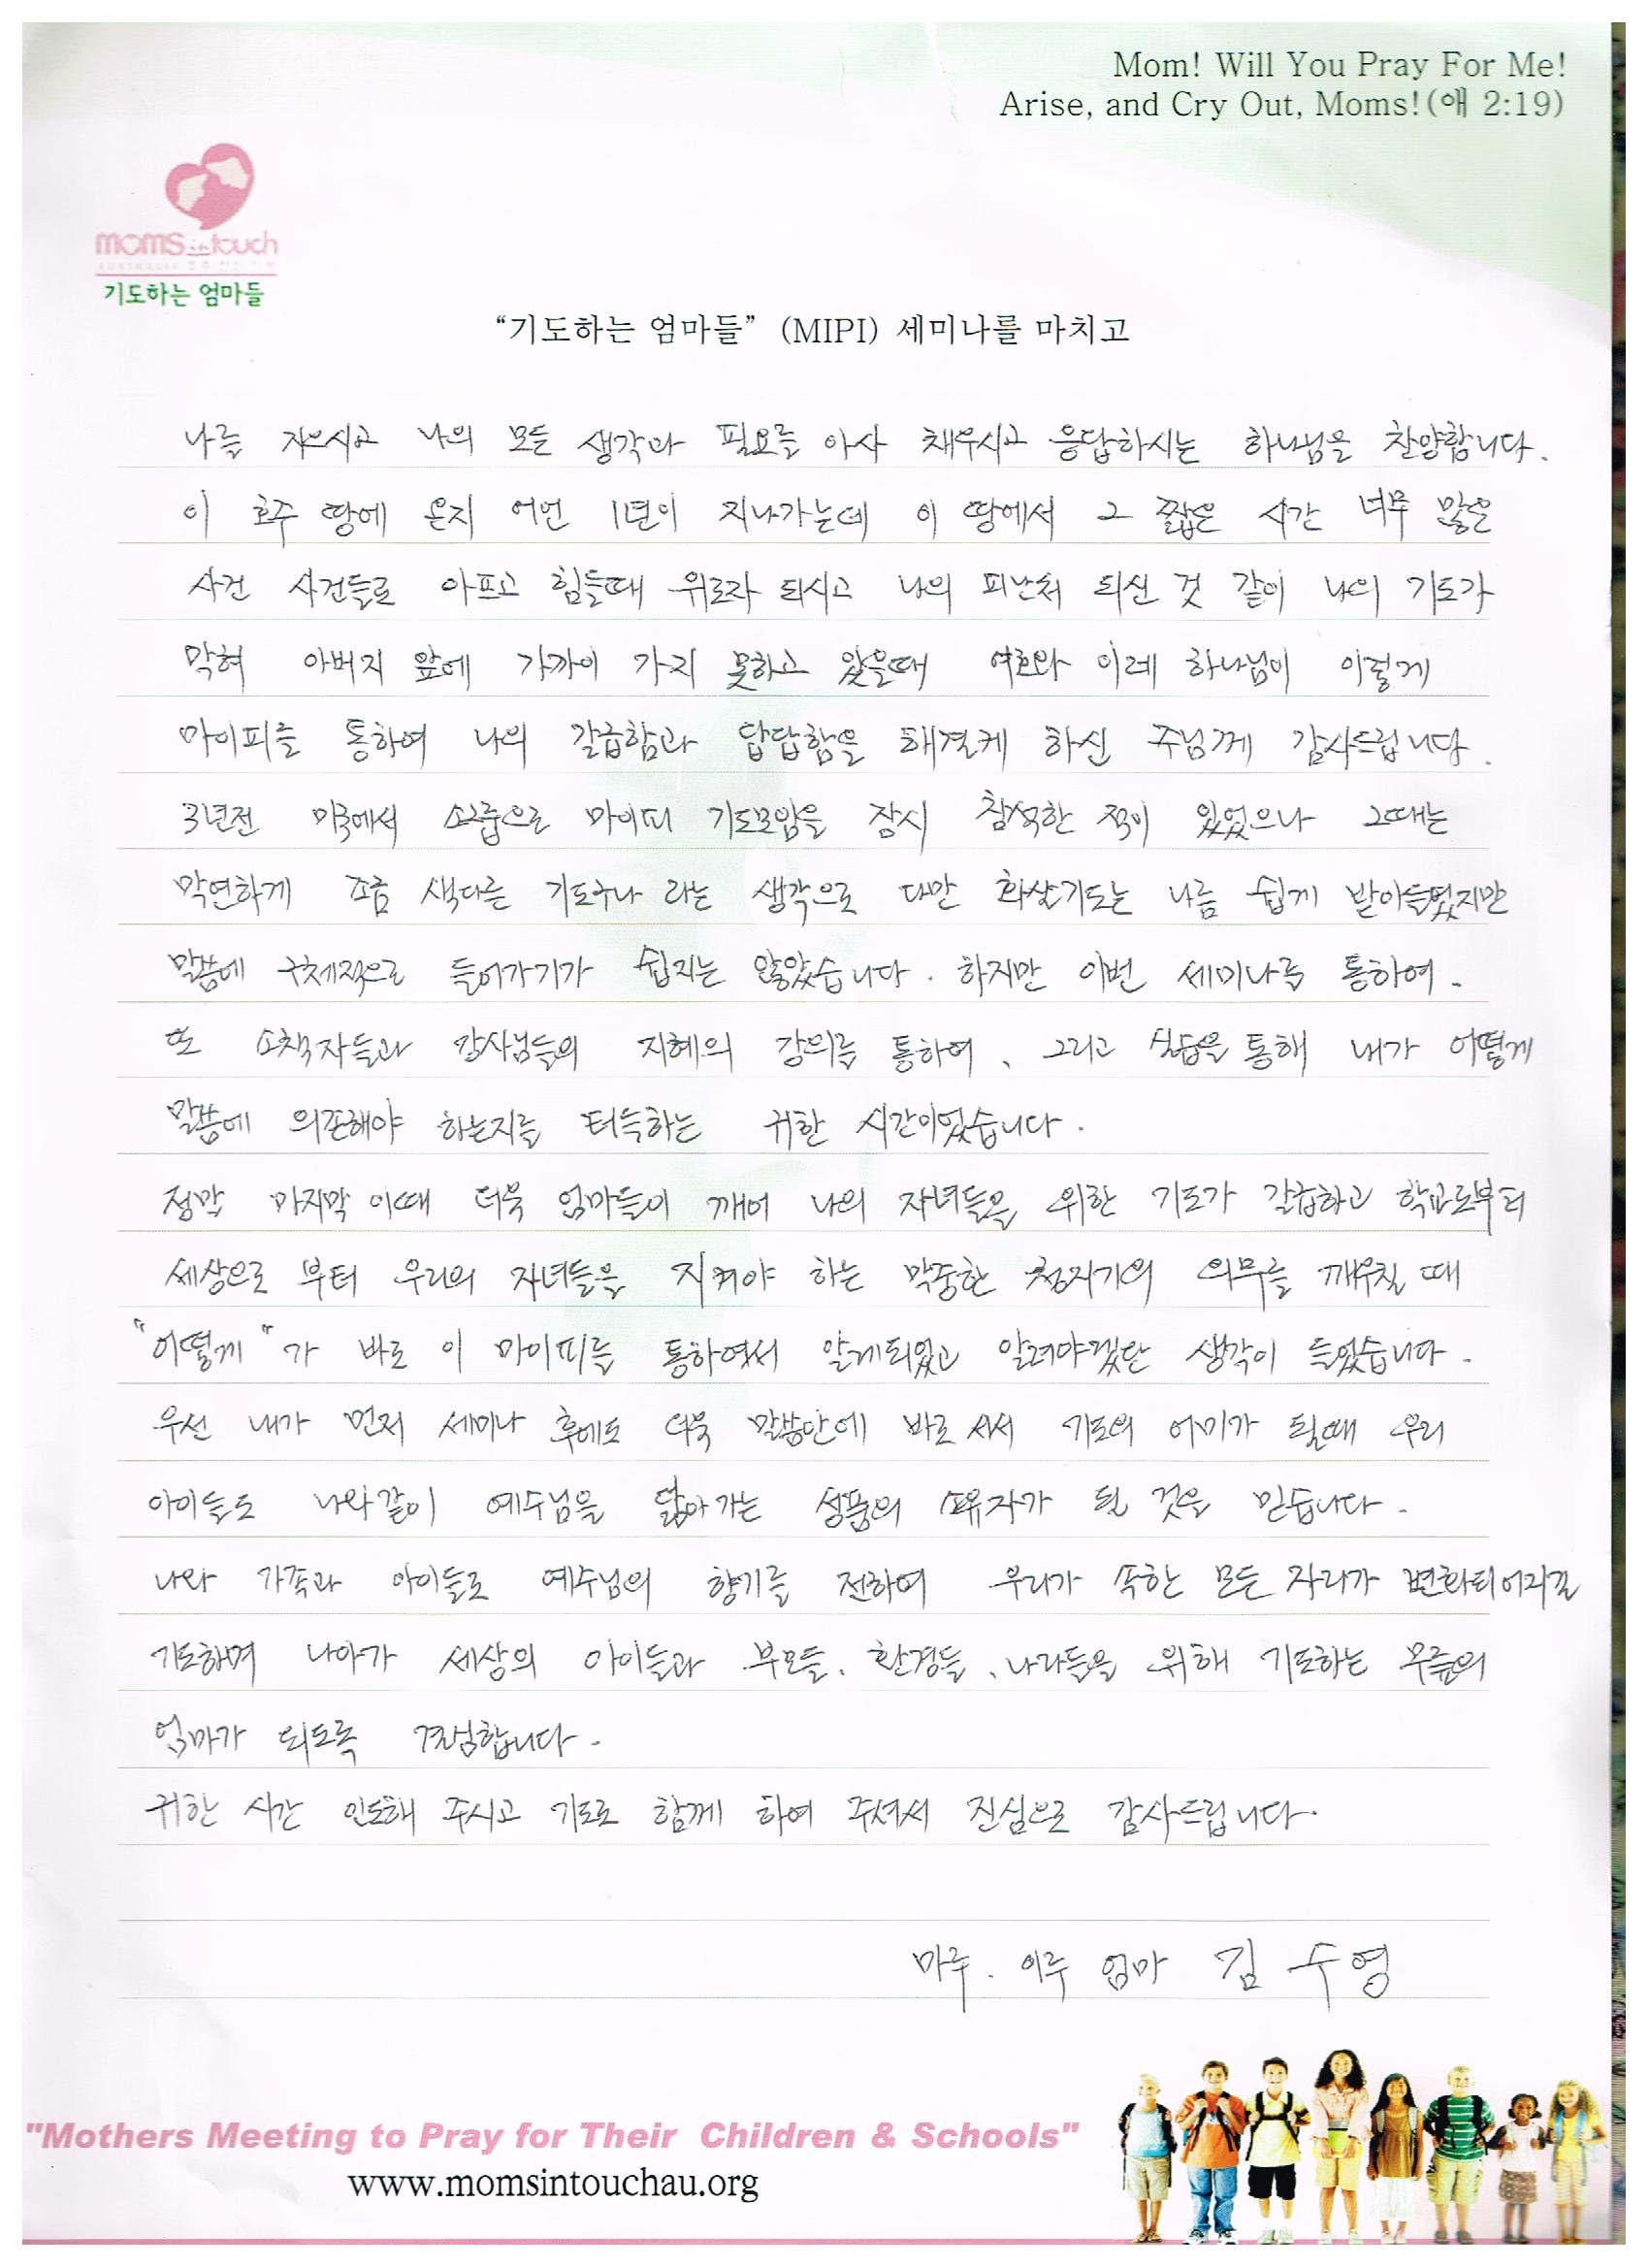 Mom! Will You Pray For Me!
Arise, and Cry Out, Moms!(애 2:19)
moms in touch
기도하는 엄마들
“기도하는 엄마들” (MIPI) 세미나를 마치고
나를 지으시고 나의 모든 생각과 필요를 아사 채우시고 응답하시는 하나님을 찬양합니다.
이 호주 땅에 온지 어언 1년이 지나가는데 이 땅에서 그 짧은 시간 너무 많은
사건 사건들로 아프고 힘들때 위로자 되시고 나의 피난처 되신 것 같이 나의 기도가
막혀 아버지 앞에 가까이 가지 못하고 있을때 여호와 이레 하나님이 이렇게
마이피를 통하여 나의 갈급함과 답답함을 해결케 하신 주님께 감사드립니다.
3년전 미국에서 소그룹으로 마이피 기도모임을 잠시 참석한 적이 있었으나 그때는
막연하게 조금 색다른 기도구나 라는 생각으로 다만 화살기도는 나름 쉽게 받아들였지만
말씀에 구체적으로 들어가기가 쉽지는 않았습니다. 하지만 이번 세미나를 통하여.
또 소책자들과 강사님들의 지혜의 강의를 통하여, 그리고 실습을 통해 내가 어떻게
말씀에 의존해야 하는지를 터득하는 귀한 시간이었습니다.
정말 마지막 이때 더욱 엄마들이 깨어 나의 자녀들을 위한 기도가 갈급하고 학교로부터
세상으로 부터 우리의 자녀들을 지켜야 하는 막중한 청지기의 의무를 깨우칠 때
"어떻게"가 바로 이 마이피를 통하여서 알게되었고 알려야겠단 생각이 들었습니다.
우선 내가 먼저 세미나 후에도 더욱 말씀안에 바로 서서 기도의 어미가 될때 우리
아이들도 나와같이 예수님을 닮아가는 성품의 소유자가 될 것을 믿습니다.
나와 가족과 아이들로 예수님의 향기를 전하여 우리가 속한 모든 자리가 변화되어지길
기도하며 나아가 세상의 아이들과 부모들, 환경들, 나라들을 위해 기도하는 무릎의
엄마가 되도록 결심합니다.
귀한 시간 인도해 주시고 기도로 함께 하여 주셔서 진심으로 감사드립니다.
마루. 이루 엄마 김수영
"Mothers Meeting to Pray for Their Children & Schools"
www.momsintouchau.org